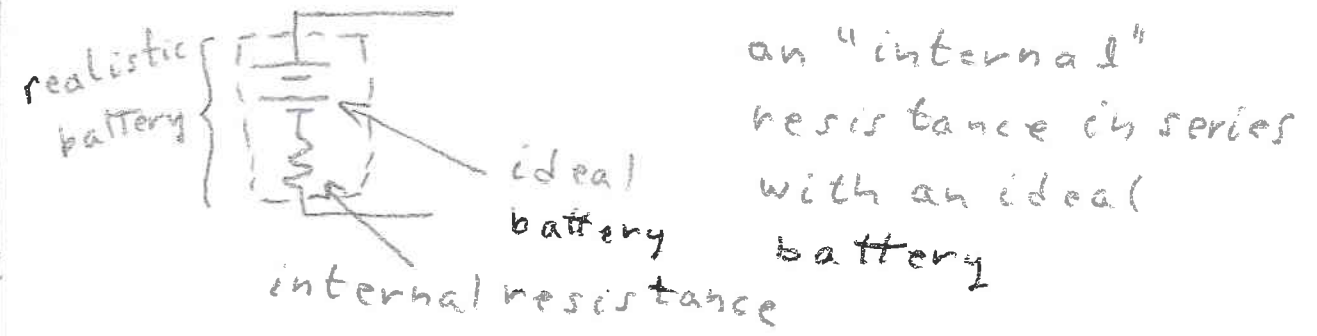 realistic
battery
ideal
battery
internal resistance
an "internal"
resistance in series
with an ideal
battery